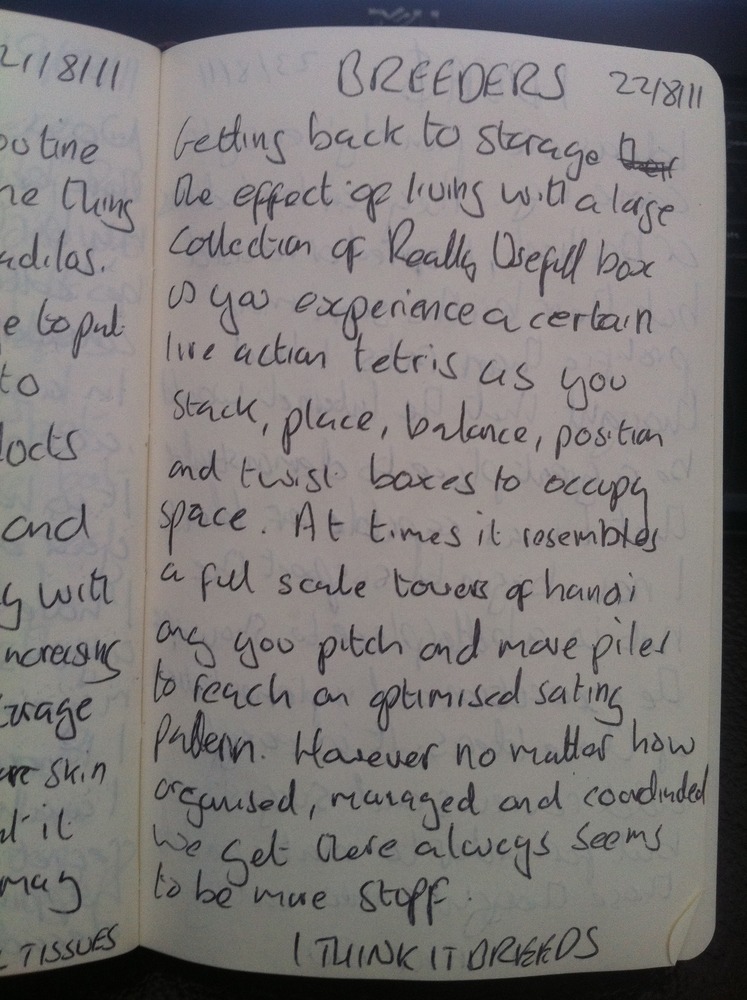 21/8/11
outine
ne thing
adilas.
e to put
to
locts
and
g with
ncreasing
orage
are skin
it
may
TISSUES
BREEDERS 22/8/11
Getting back to storage their
the effect of living with a large
collection of Really Usefull box
is you experience a certain
live action tetris as you
stack, place, balance, position
and twist boxes to occupy
space. At times it resembles
a full scale towers of hanoi
as you pitch and move piles
to reach an optimised sating
pattern. However no matter how
organised, managed and coordinded
we get there always seems
to be more stoff.
I THINK IT BREEDS